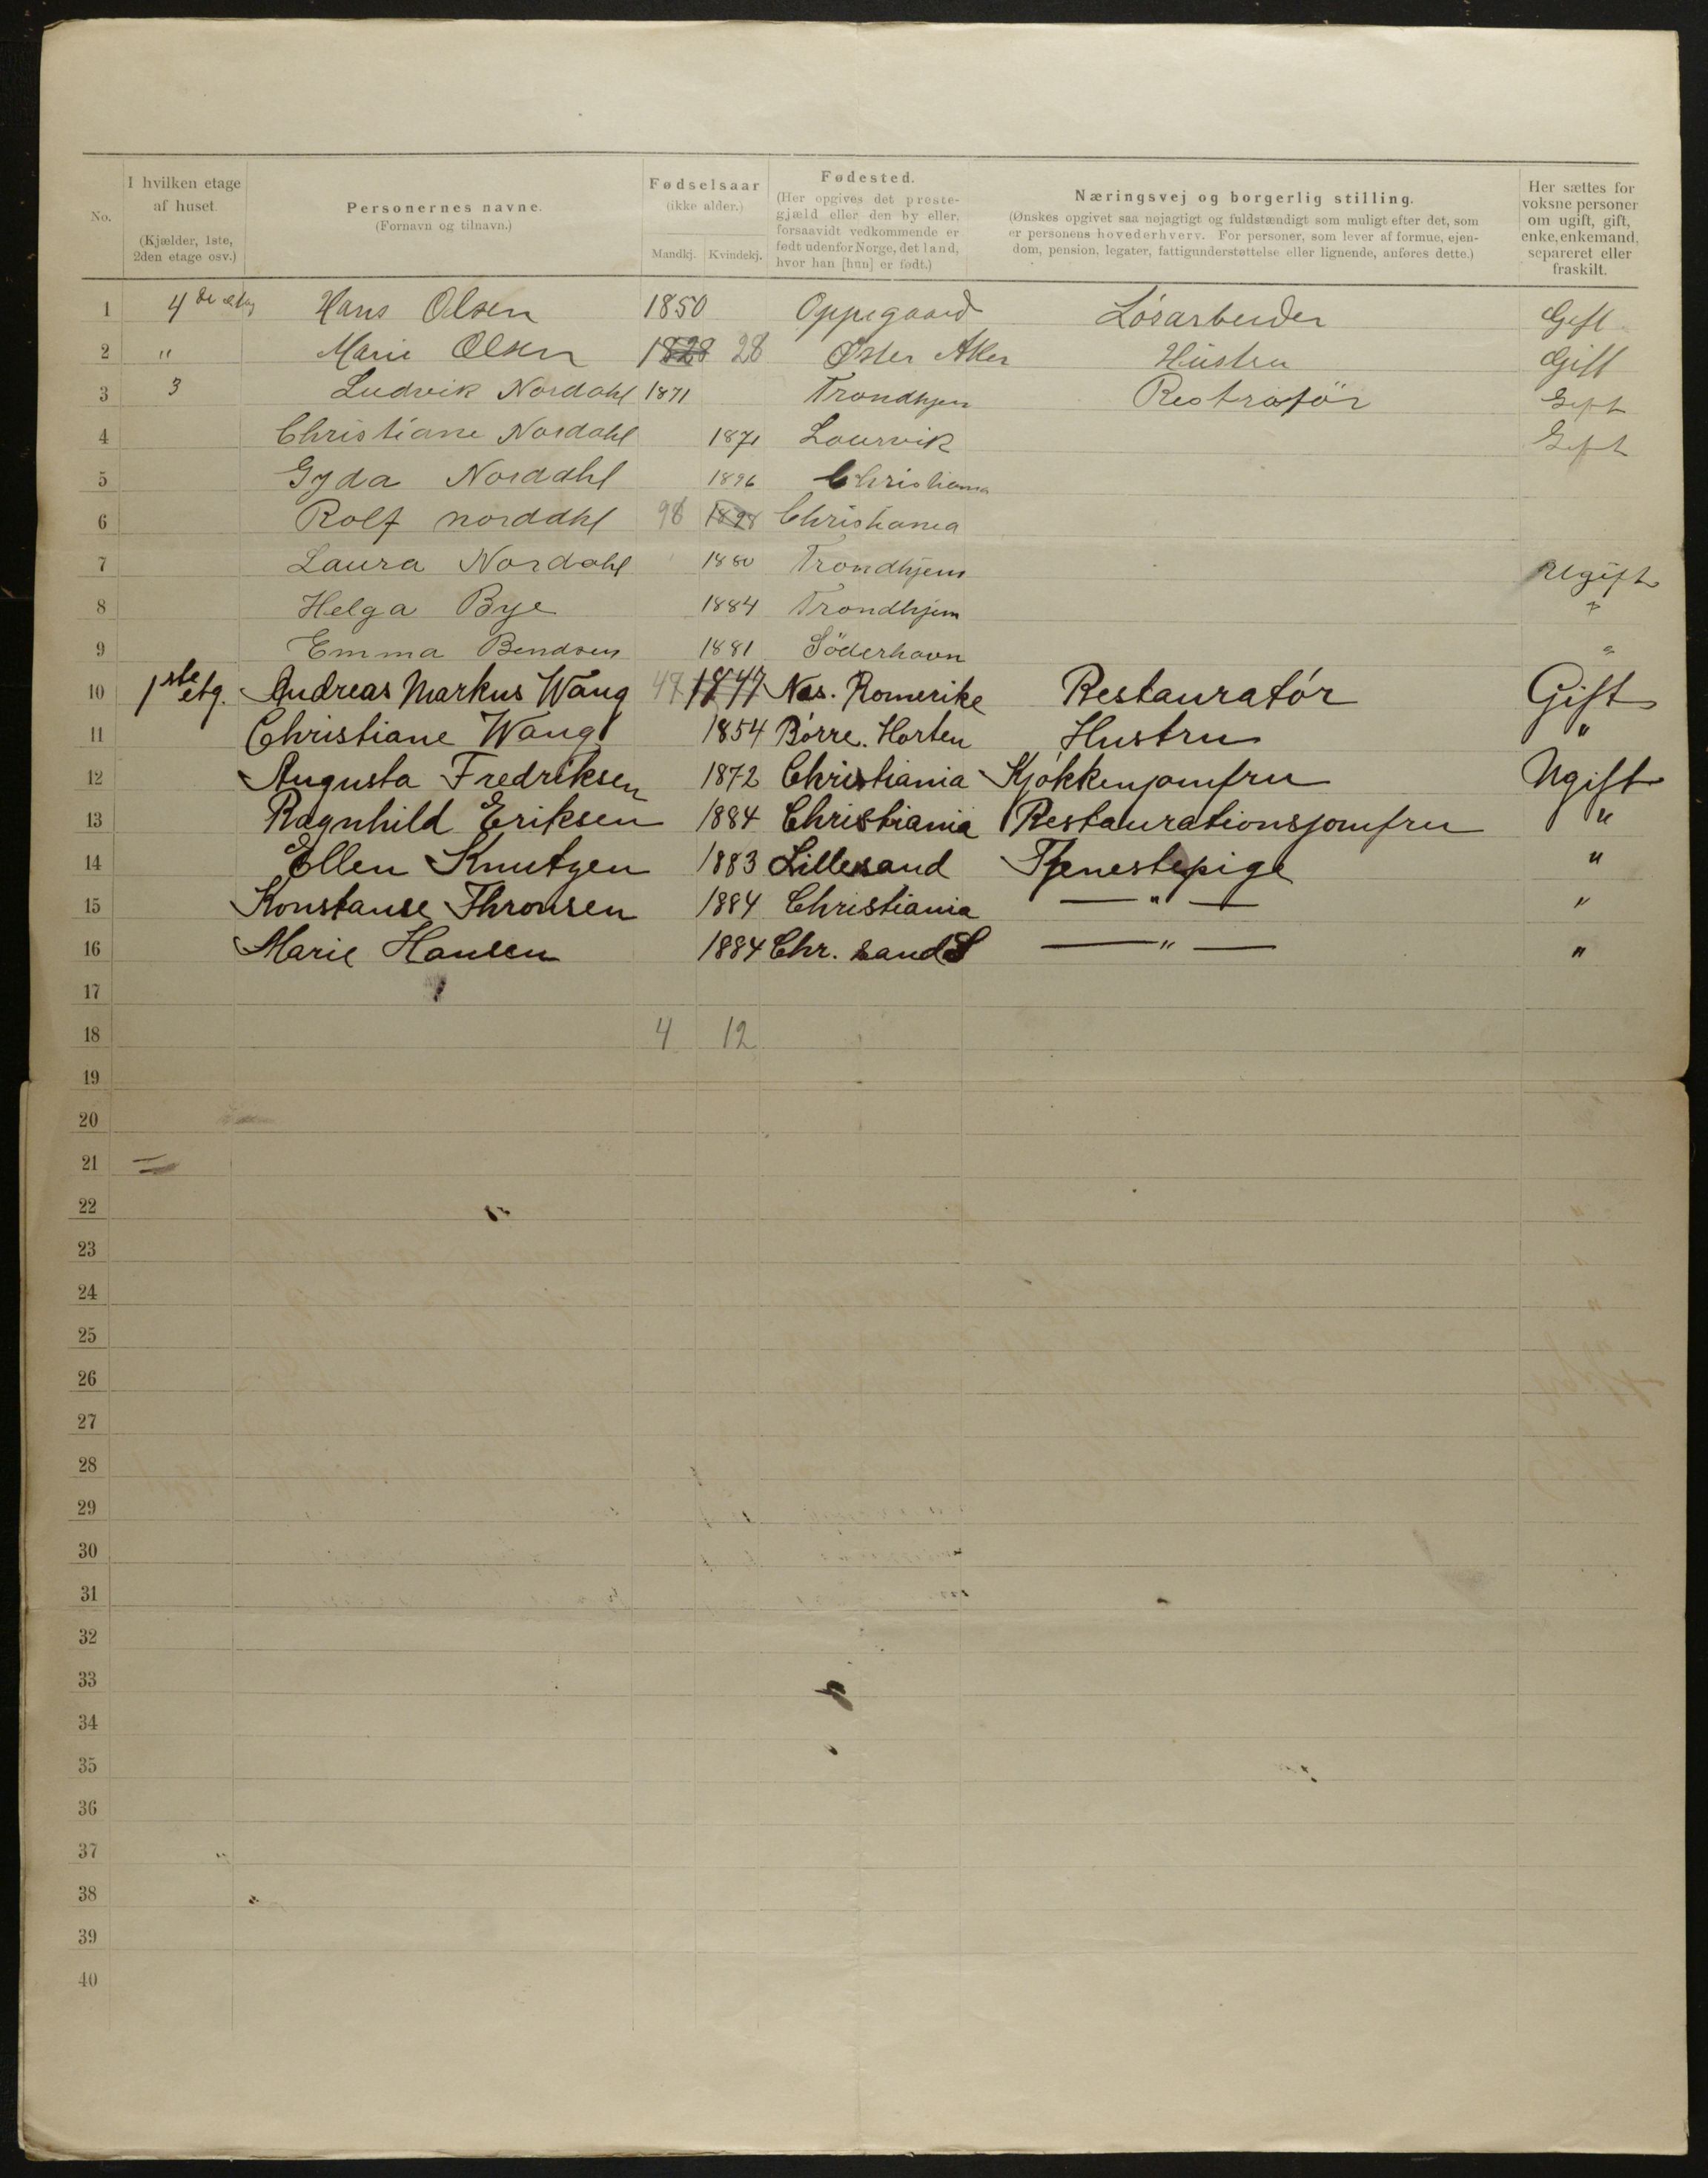 No. I hvilken etage af huset. (Kjælder, 1ste, 2den etage osv.) Personernes navne. (Fornavn og tilnavn.) Fødselsaar (ikke alder.) Mandkj. Kvindekj. Fødested. (Her opgives det prestegjæld eller den by eller, forsaavidt vedkommende er født udenfor Norge, det land, hvor han [hun] er født.) Næringsvej og borgerlig stilling. (Ønskes opgivet saa nøjagtigt og fuldstændigt som muligt efter det, som er personens hovederhverv. For personer, som lever af formue, ejendom, pension, legater, fattigunderstøttelse eller lignende, anføres dette.) Her sættes for voksne personer om ugift, gift, enke, enkemand, separeret eller fraskilt.
1 4de etag Hans Olsen 1850 Oppegaard Løsarbeider Gift
2 " Marie Olsen 1828 28 Øster Aker Hüstru Gift
3 3 Ludvik Nordahl 1871 Trondhjem Restratör Gift
4 Christiane Nordahl 1871 Lourvik Gift
5 Gyda Norddhl 1896 Christiania
6 Rolf norddhl 98 1898 Christiania
7 Laura Nordahl 1880 Trondhjem Ugift
8 Helga Bye 1884 Trondhjem "
9 Emma Bendsen 1881 Söderhavn "
10 1ste etg. Andreas Markus Wang 47 1847 Nes. Romerike Restauratór Gift
11 Christiane Wang 1854 Börre. Horten Hustru "
12 Augusta Fredriksen 1872 Christiania Kjókkenjomfru Ugift
13 Ragnhild Eriksen 1884 Christiania Restaurationsjomfru "
14 Ellen Knutzen 1883 Lillesand Tjenestepige "
15 Konstanse Thronsen 1884 Christiania — " — "
16 Marie Hansen 1884 Chr. sand S — " — "
17
18 4 12
19
20
21
22
23
24
25
26
27
28
29
30
31
32
33
34
35
36
37
38
39
40